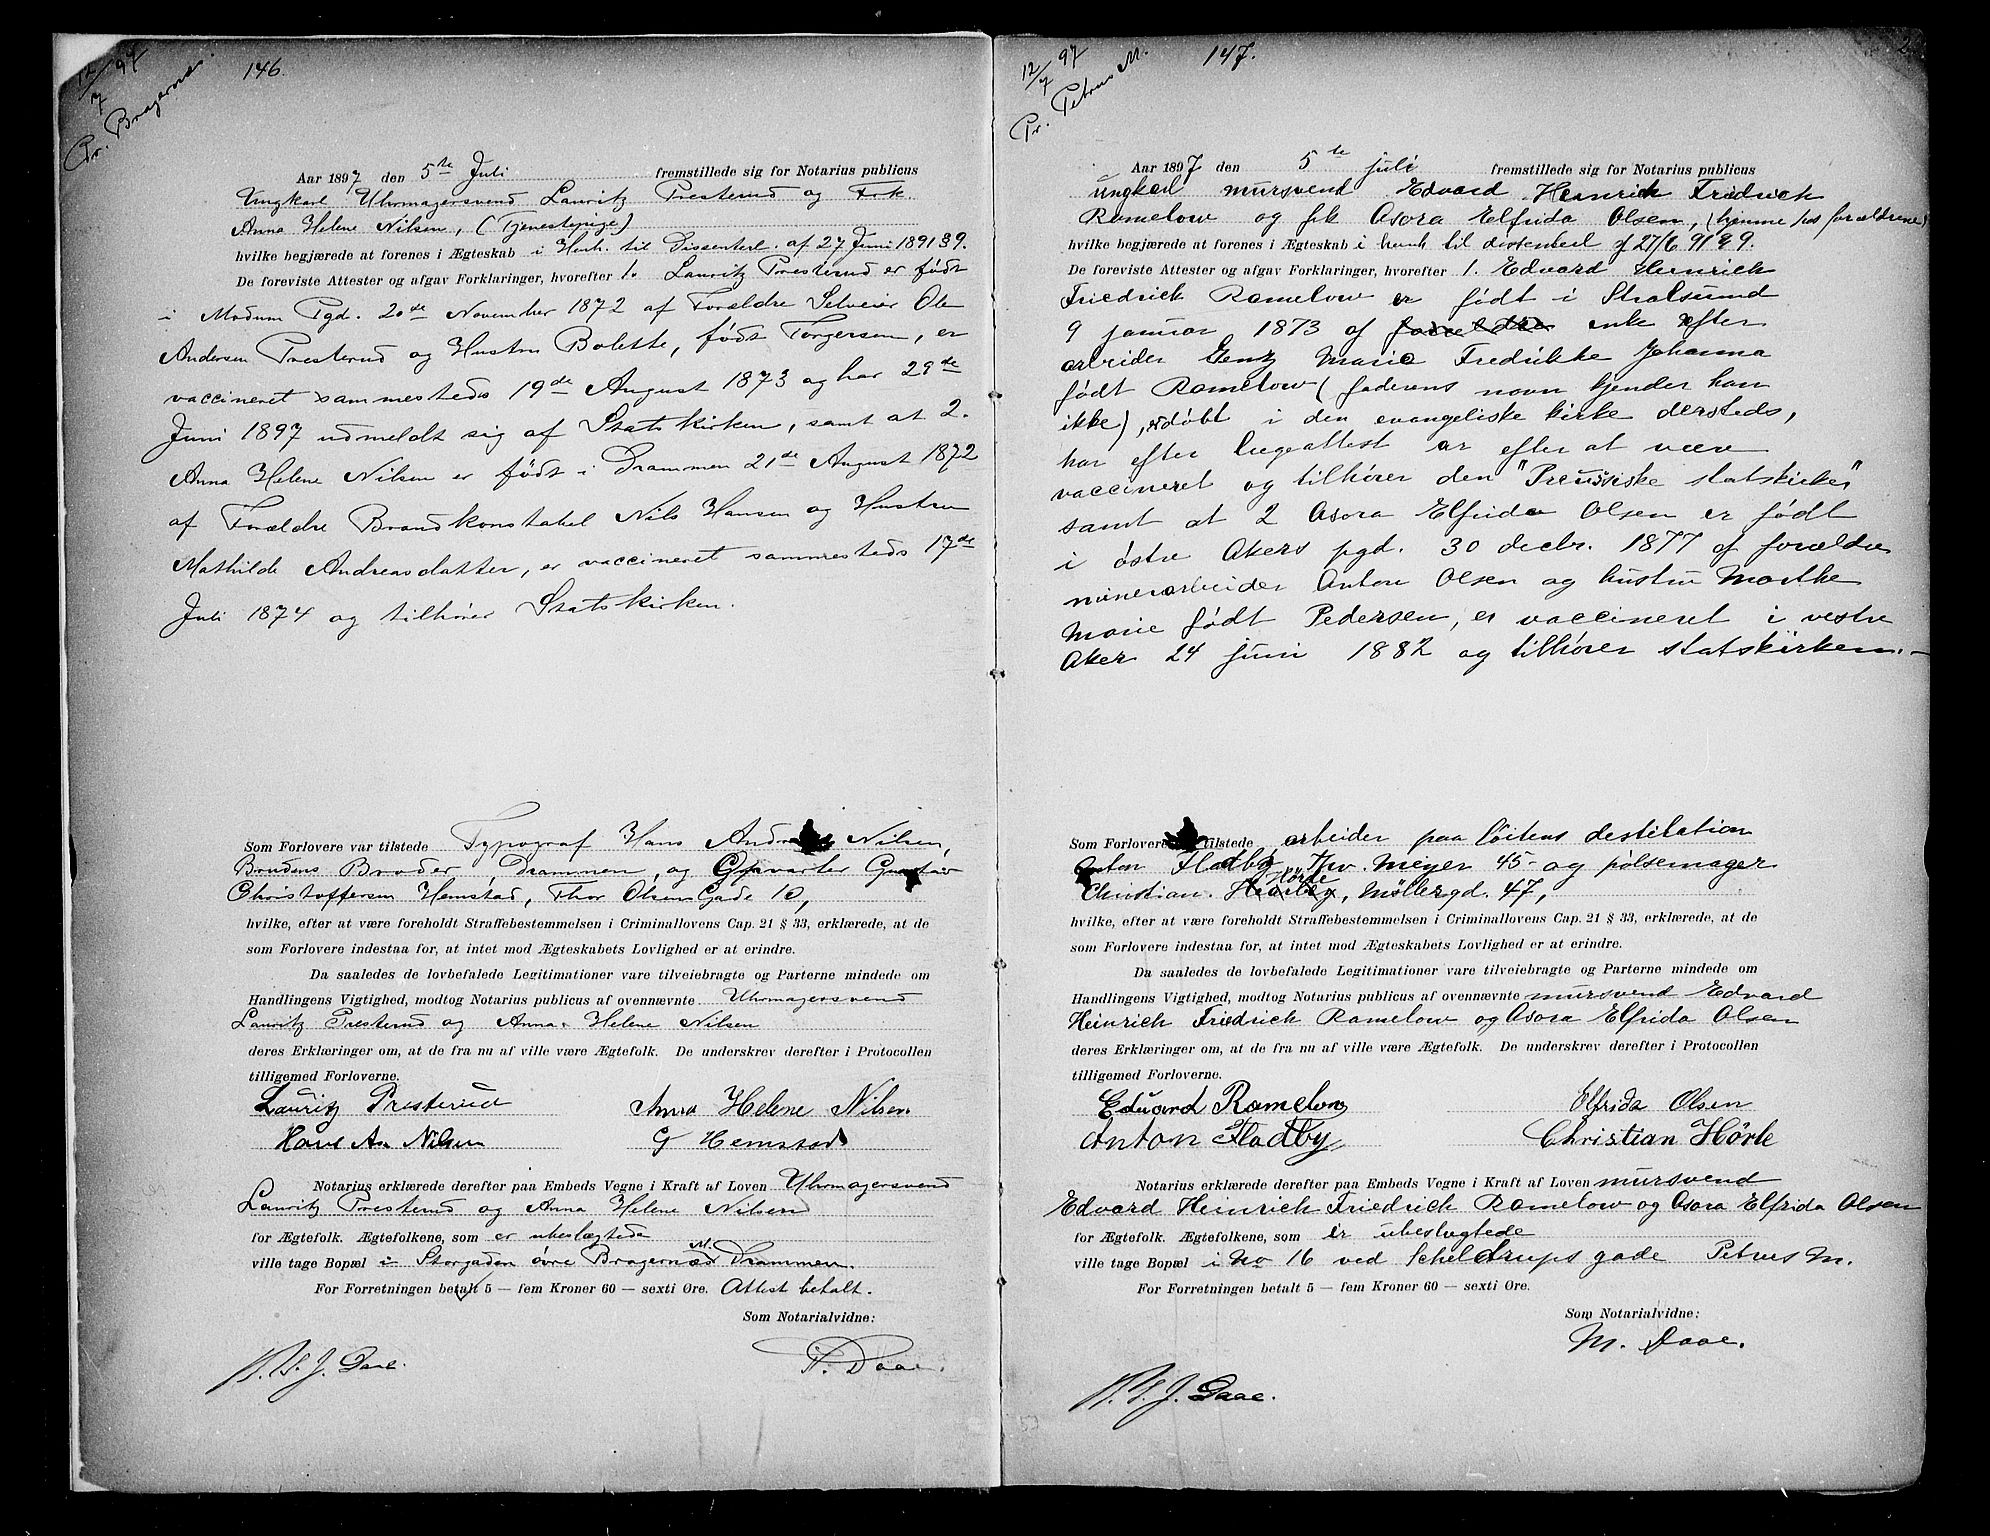 12/7 97
Pr. Bragernes.
146.
Aar 1897 den 5te Juli fremstillede sig for Notarius publicus
Ungkarl Uhrmagersvend Lauritz Presterud og Frk.
Anna Helene Nilsen, (Tjenestepige)
hvilke begjærede at forenes i Ægteskab i Henh. til Dissenterl. af 27 Juni 1891 § 9.
De foreviste Attester og afgav Forklaringer, hvorefter 1. Lauritz Presterud er født
i Modum Pgd. 20de November 1872 af Forældre Selveier Ole
Andersen Presterud og Hustru Bolette, født Torgersen, er
vaccineret sammesteds 19de August 1873 og har 29de
Juni 1897 udmeldt sig af Statskirken, samt at 2.
Anna Helene Nilsen er født i Drammen 21de August 1872
af Forældre Brandkonstabel Nils Hansen og Hustru
Mathilde Andreasdatter, er vaccineret sammesteds 17de
Juli 1874 og tilhører Statskirken.
Som Forlovere var tilstede Typograf Hans Andreas Nilsen,
Brudens Broder, Drammen, og Gustav
Christoffersen Hemstad, Thor Olsens Gade 10,
hvilke, efter at være foreholdt Straffebestemmelsen i Criminallovens Cap. 21 § 33, erklærede, at de
som Forlovere indestaa for, at intet mod Ægteskabets Lovlighed er at erindre.
Da saaledes de lovbefalede Legitimationer vare tilveiebragte og Parterne mindede om
Handlingens Vigtighed, modtog Notarius publicus af ovennævnte Uhrmagersvend
Lauritz Presterud og Anna Helene Nilsen
deres Erklæringer om, at de fra nu af ville være Ægtefolk. De underskrev derefter i Protocollen
tilligemed Forloverne.
Lauritz Presterud Anna Helene Nilsen
Hans An Nilsen G Hemstad
Notarius erklærede derefter paa Embeds Vegne i Kraft af Loven Uhrmagersvend
Lauritz Presterud og Anna Helene Nilsen
for Ægtefolk. Ægtefolkene, som er ubeslægtede
ville tage Bopæl i Storgaden øvre Bragernæs M. Drammen.
For Forretningen betalt 5 — fem Kroner 60 — sexti Øre. Attest betalt.
Som Notarialvidne:
Daae.
J. Daae.
12/7 97
Pr. Petrus M.
147.
Aar 1897 den 5te juli fremstillede sig for Notarius publicus
ungkarl mursvend Edvard Heinrich Friedrich
Ramelow og frk Asora Elfrida Olsen, (hjemme hos forældrene)
hvilke begjærede at forenes i Ægteskab i henh til dissenterl af 27/6 91 § 9.
De foreviste Attester og afgav Forklaringer, hvorefter 1. Edvard Heinrich
Friedrich Ramelow er født i Stralsund
9 januar 1873 af forældre enke efter
arbeider Genz Marie Fredrikke Johanna
født Ramelow (faderens navn kjender han
ikke), er døbt i den evangeliske kirke dersteds,
har efter lægeattest ar efter at være
vaccineret og tilhører den "Preussiske statskirke"
samt at 2 Asora Elfrida Olsen er født
i østre Akers pgd. 30 decbr. 1877 af forældre
minerarbeider Anton Olsen og hustru Marthe
Marie født Pedersen, er vaccineret i vestre
Aker 24 juni 1882 og tilhører statskirken. —
Som Forlovere tilstede arbeider paa Løitens destilation
Anton Fladby, Thv. Meyer 45 - og pølsemager
Christian Hörle, Møllergd. 47,
hvilke, efter at være foreholdt Straffebestemmelsen i Criminallovens Cap. 21 § 33, erklærede, at de
som Forlovere indestaa for, at intet mod Ægteskabets Lovlighed er at erindre.
Da saaledes de lovbefalede Legitimationer vare tilveiebragte og Parterne mindede om
Handlingens Vigtighed, modtog Notarius publicus af ovennævnte mursvend Edvard
Heinrich Friedrich Ramelow og Asora Elfrida Olsen
deres Erklæringer om, at de fra nu af ville være Ægtefolk. De underskrev derefter i Protocollen
tilligemed Forloverne.
Eduard Ramelow Elfrida Olsen
Anton Fladby Christian Hörle
Notarius erklærede derefter paa Embeds Vegne i Kraft af Loven mursvend
Edvard Heinrich Friedrich Ramelow og Asora Elfrida Olsen
for Ægtefolk. Ægtefolkene, som er ubeslægtede
ville tage Bopæl i No 16 ved Scheldrups gade Petrus M.
For Forretningen betalt 5 — fem Kroner 60 — sexti Øre.
Som Notarialvidne:
M. Daae.
J. Daae.